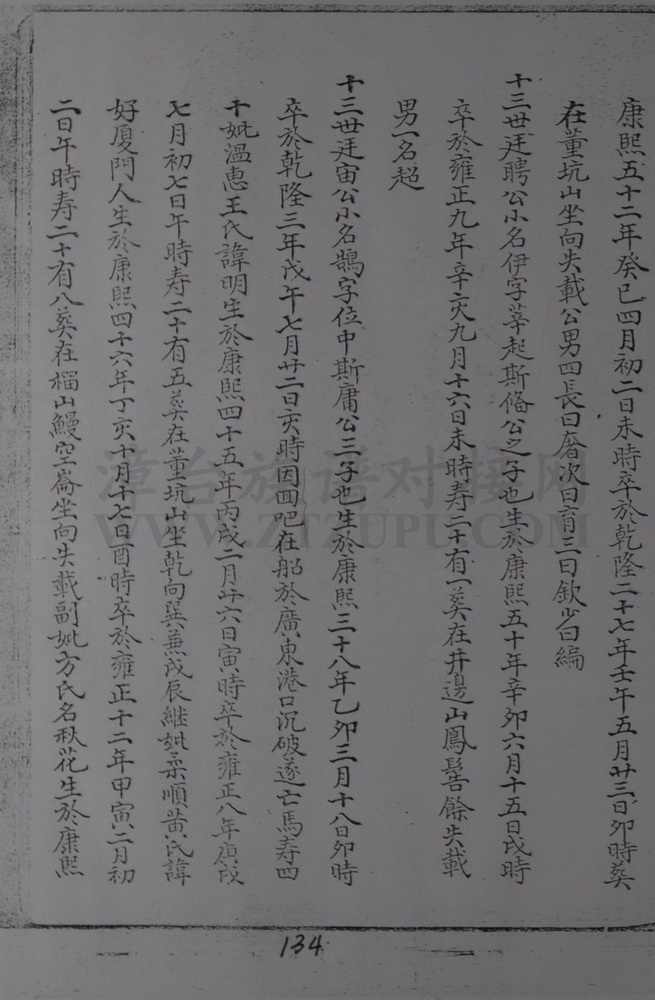 康熙五十二年癸巳四月初二日未時卒於乾隆二十七年壬午五月廿三日卯時葬
在董坑山坐向失載公男四長曰磨次曰育三曰欽少曰編
十三世廷聘公小名伊字莘起斯脩公之子也生於康熙五十年辛卯六月十五日戌時
卒於雍正九年辛亥九月十六日未時寿二十有一葬在井邊山鳳髻餘失載
男一名超
十三世廷宙公小名鵠字位中斯庸公三子也生於康熙三十八年乙卯三月十八日卯時
卒於乾隆三年戊午七月廿二日亥時因回吧在船於廣東港口沉破遂亡焉寿四
十妣溫惠王氏諱明生於康熙四十五年丙戌二月廿六日寅時卒於雍正八年庚戌
七月初七日午時寿二十有五葬在董坑山坐乾向巽兼戌辰継妣柔順黃氏諱
好廈門人生於康熙四十六年丁亥十月十七日酉時卒於雍正十二年甲寅二月初
二日午時寿二十有八葬在榴山鰻空崙坐向失載副妣方氏名秋花生於康熙
漳台族谱对接网
WWW.ZTZUPU.COM
134